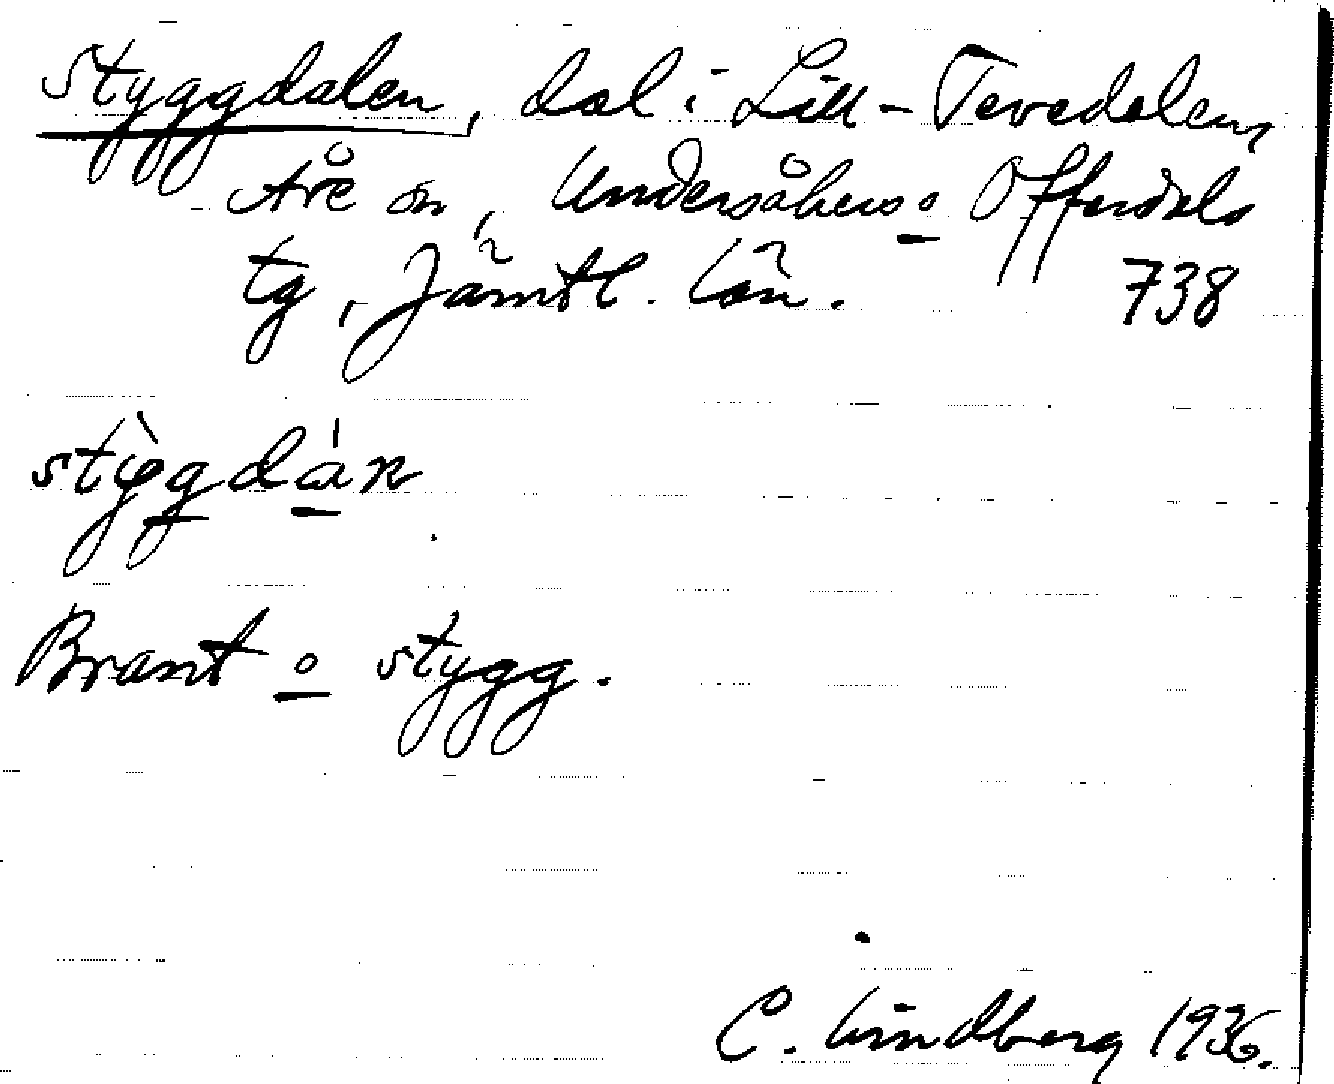 Styggdalen, dal i Lill-Tevedalen,
Åre sn, Undersåkers o Offerdals
tg, Jämtl. län. 738
Brant o stygg.
C. Lindberg 1936.